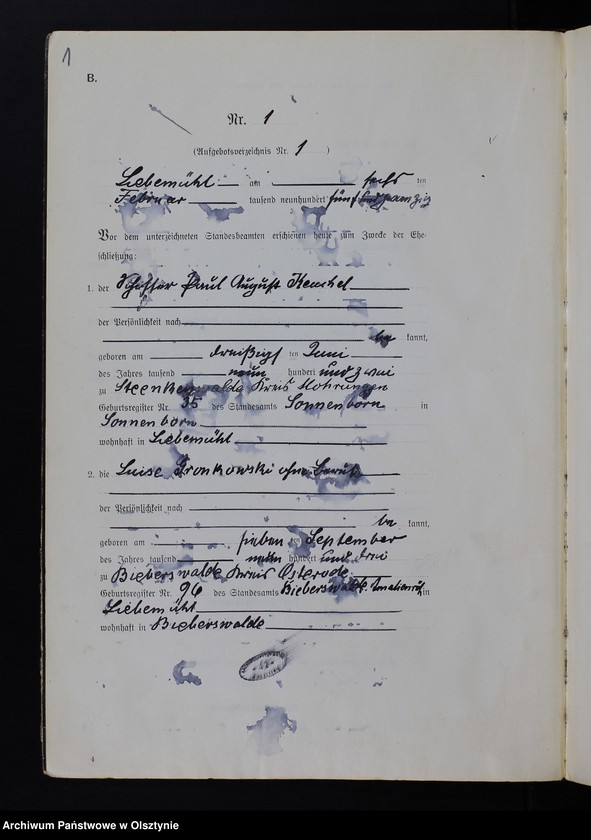 1
B.
Nr. 1
(Aufgebotsverzeichnis Nr. 1)
Liebemühl am sechs ten
Februar tausend neunhundert fünf und zwanzig
Vor dem unterzeichneten Standesbeamten erschienen heute zum Zwecke der Ehe-
schließung:
1. der Paul August Henchel
der Persönlichkeit nach
be kannt,
geboren am dreißigs ten Juni
des Jahres tausend neun hundert und zwei
zu Steenkenwalde Kreis Mohrungen
Geburtsregister Nr. 35 des Standesamts Sonnenborn in
Sonnenborn
wohnhaft in Liebemühl
2. die Luise ohne Beruf
der Persönlichkeit nach
be kannt,
geboren am sieben ten September
des Jahres tausend neun hundert und drei
zu Bieberswalde Kreis Osterode
Geburtsregister Nr. 96 des Standesamts Bieberswalde in
Liebemühl
wohnhaft in Bieberswalde
Archiwum Państwowe w Olsztynie